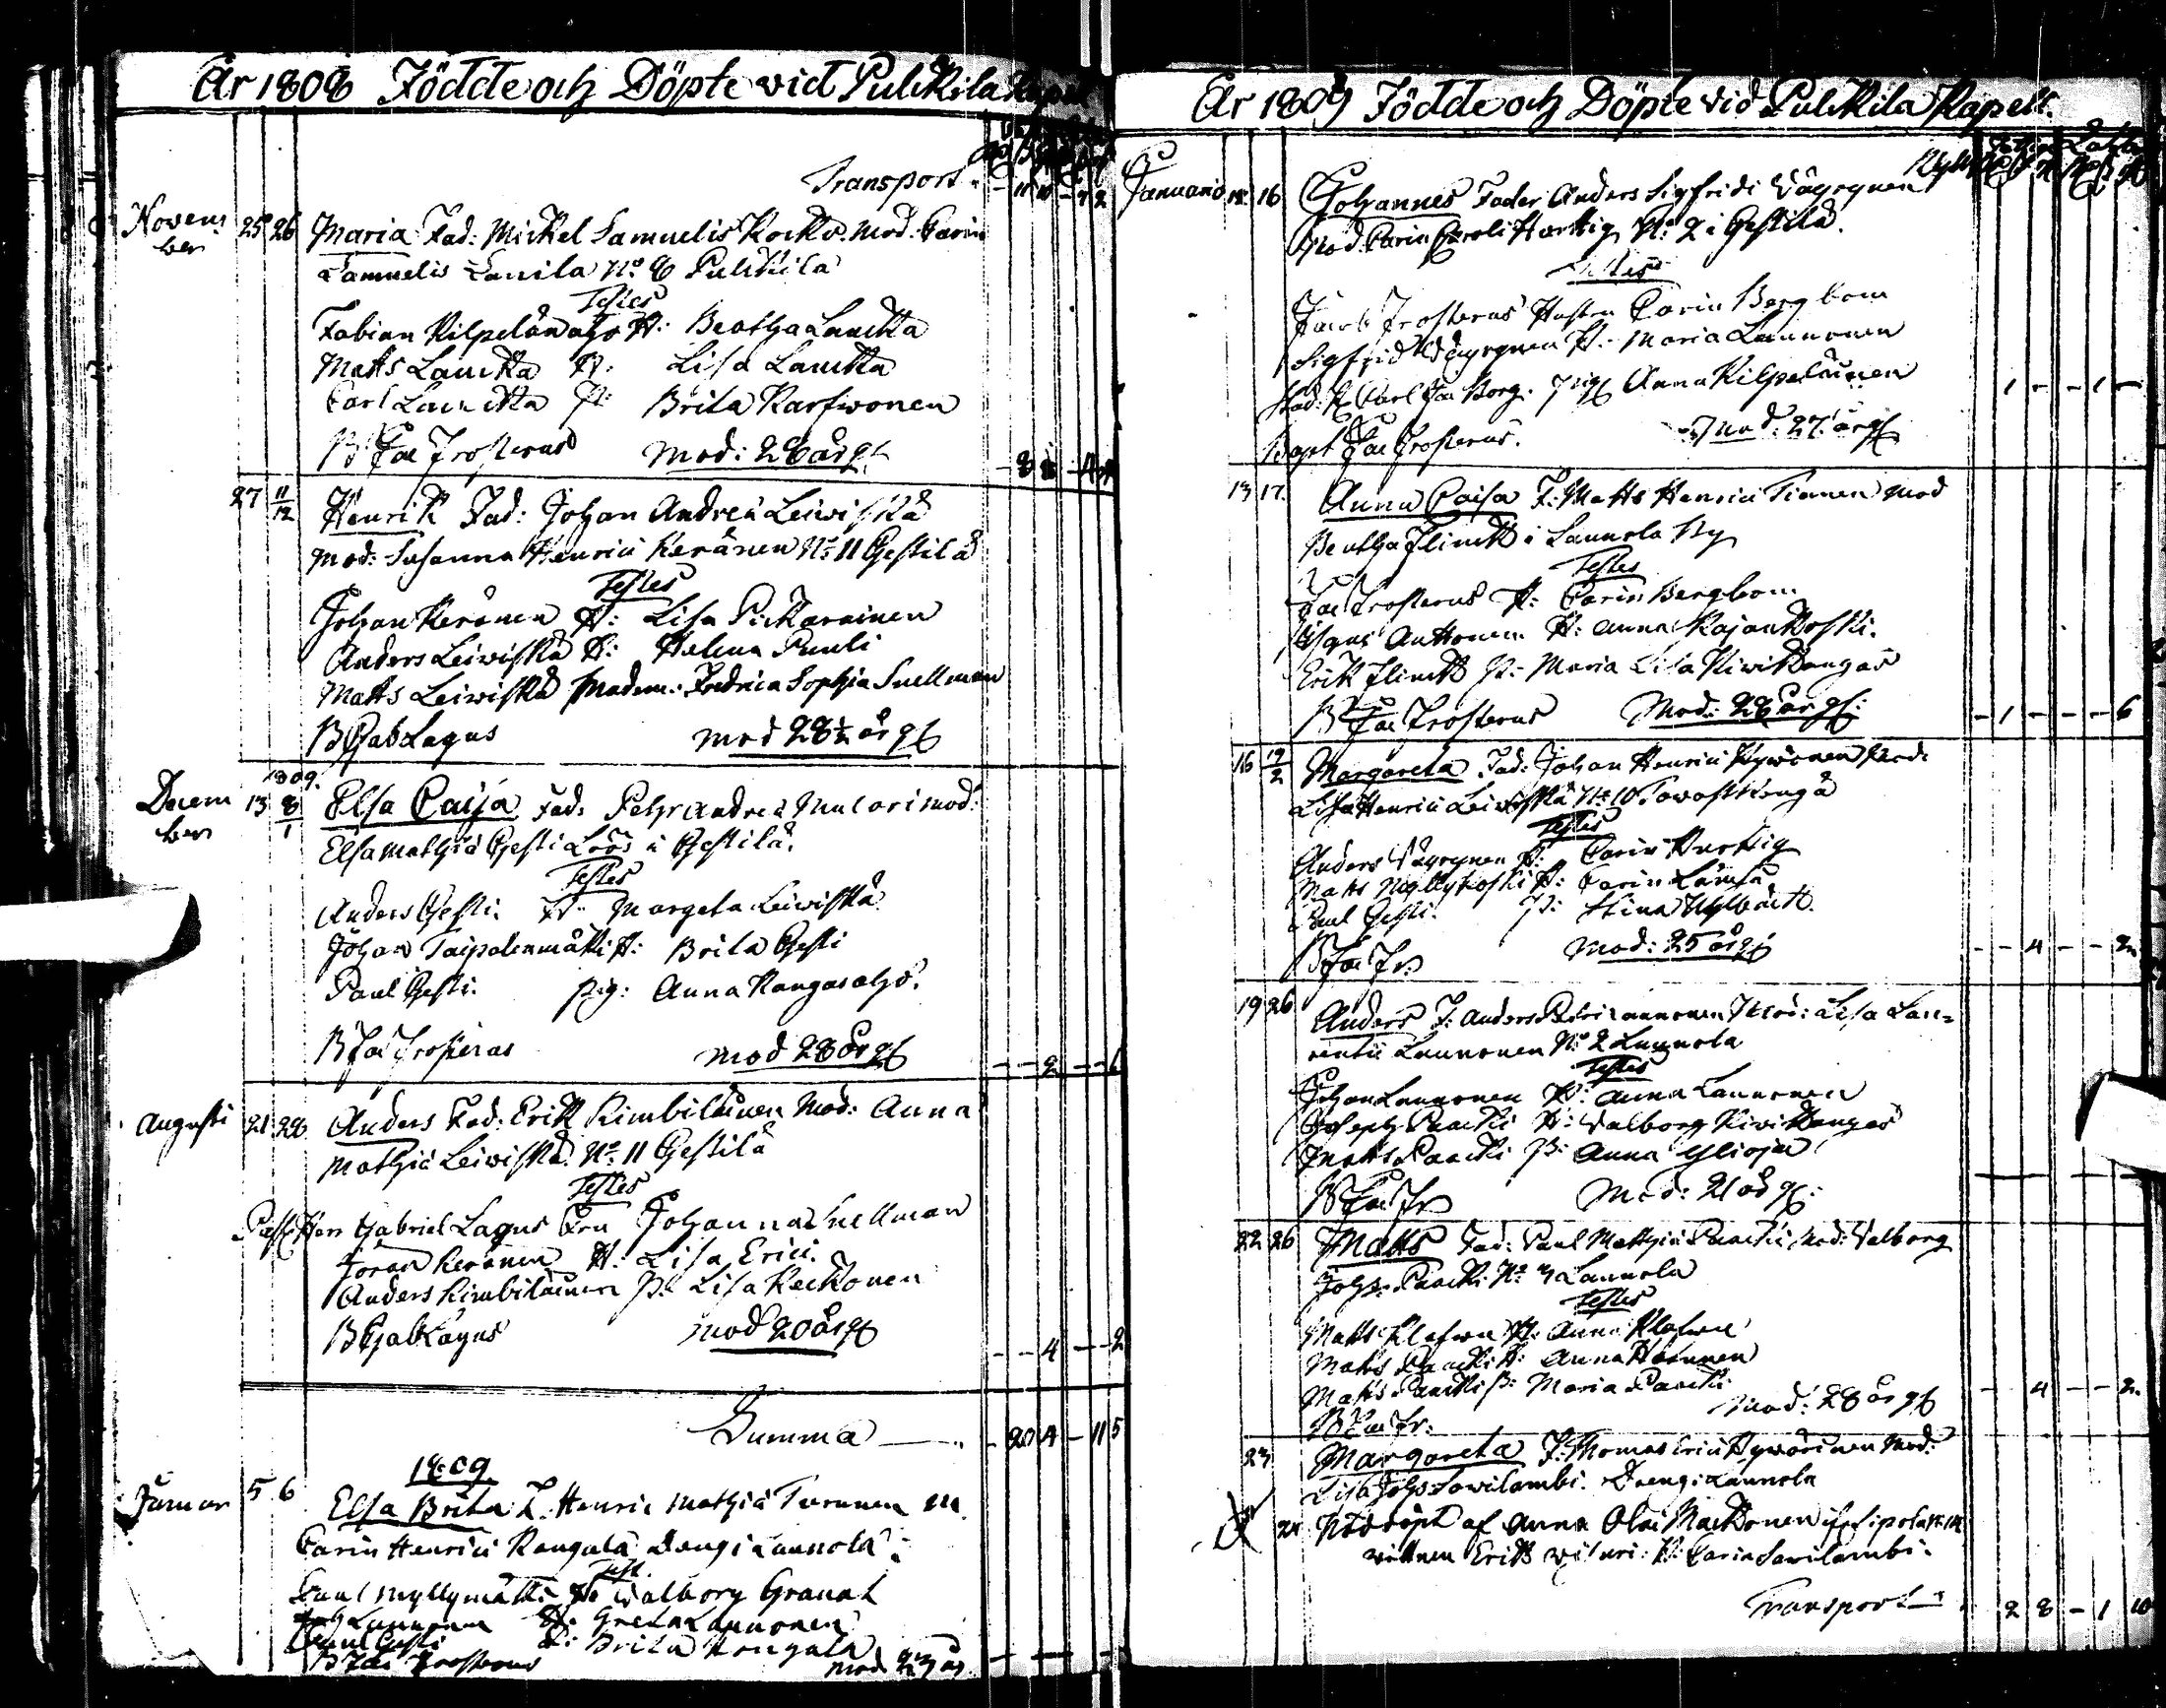 År 1808 Födde och Döpte vid Pulkila Kapell
Transport - 11 10 - 7 2
Novem
ber
25 26 Maria Fad: Mickel Samuelis Kocko Mod: Carin
Samuelis Lanila No 8 Pulkila
Testes
Fabian Kilpelänaho H: Beatha Laukka
Matts Laukka H: Lisa Laukka
Carl Laukka P: Brita Karfwonen
B Jac Frosterus Mod: 28 år g
27 11/12 Henrik Fad: Johan Andreæ Leiwiskä
Mod: Susanna Henrici Keränen No 11 Gestilä
Testes
Johan Keränen H: Lisa Pickarainen
Anders Leiwiskä H: Helena Pauli
Matts Leiwiskä Madem: Fredrica Sophia Snellman
B Gab Lagus Mod 28½ år g
1809.
Decem
ber
13 8/1 Elsa Caisa Fad: Pehr Andreæ Mulari Mod:
Elsa Mathiæ Gesti Lös i Gestilä.
Testes
Anders Gesti H: Margeta Leiwiskä
Johan Taipalenmäki H: Brita Gesti
Paul Gesti. pig: Anna Kangasaho.
B Jac Frosterus Mod 28 år g
- - 2 - -
Augusti 21 28 Anders Fad: Erik Kimbiläinen Mod: Anna
Mathiæ Leiwiskä No 11 Gestilä
Testes
Past: Herr Gabriel Lagus Fru Johanna Snellman
Jöran Keränen H: Lisa Erici.
Anders Kimbiläinen P: Lisa Keckonen
B Gab Lagus Mod 20 år g
- - 4 - - 2
Summa - 20 4 - 11 5
1809
Januar 5 6 Elsa Brita F. Henric Mathiæ Turunen M
Carin Henrici Kangala Dreng i Launola
Test.
Paul Myllymäki H: Walborg Granat
Launonen H: Greta Launonen
Paul Gesti P: Brita Kangala
B Jac Frosterus Mod 23 år
År 1809 Födde och Döpte vid Pulkila Kapell.
Januario 16 Johannes Fader Anders Sigfridi Väyrynen
Mod: Carin Caroli Hertig No 2 i Gestilä.
Testes
Jacob Frosterus Hustru Carin Bergbom
Sigfrid Väyrynen H: Maria Launonen
Carl Borg. Pig Anna Kilpeläinen
Bapt Jac Frosterus. Mod: 27 år g
1 - - 1 -
13 17 Anna Caisa F: Matts Henrici Mod
Beatha Flinck i Launola By
Testes
Jac Frosterus H: Carin Bergbom
Anttonen H: Anna Kajankoski.
Erik Flinck P: Maria Lisa Kiwikangas
B Jac Frosterus Mod: 28 år g:
- 1 - - - 6
16 Margareta Fad: Johan Henrici Mod:
Lisa Henrici Leiwiskä No 10 Tawastkenga
Testes
Anders Väyrynen H: Carin Hertig
Matts Myllykoski H: Carin Lämsä
Paul Gesti. P: Stina
B Jac Fr: Mod: 25 år g
- - 4 - - 2
19 26 Anders F: Anders Petri Launonen Mod: Lisa Lau=
rentii Launonen No 2 Launola
Testes
Johan Launonen H: Anna Launonen
Joseph Paacki H: Walborg Kiwikangas
Matts Paacki P: Anna Yliojan
B Jac Fr Mod: 21 år g:
22 26 Matts Fad: Paul Mathiæ Paacki Mod: Valborg
Johs: Paacki No 3 Launola
Testes
Matts Klafwu H: Anna Klafwu
Matts Paacki H: Anna
Matts Paacki P: Maria Paacki
B Jac Fr: Mod: 28 år g
- 4 - - 2
23 Margareta F: Thomas Erici Hywärinen Mod:
Lisa Johs Sawilambi. Dreng i Launola
24 Nöddöpt af Anna Olai Mackonen
wittnen Erik H: Carin Sawilambi.
Transport 2 8 - 1 10